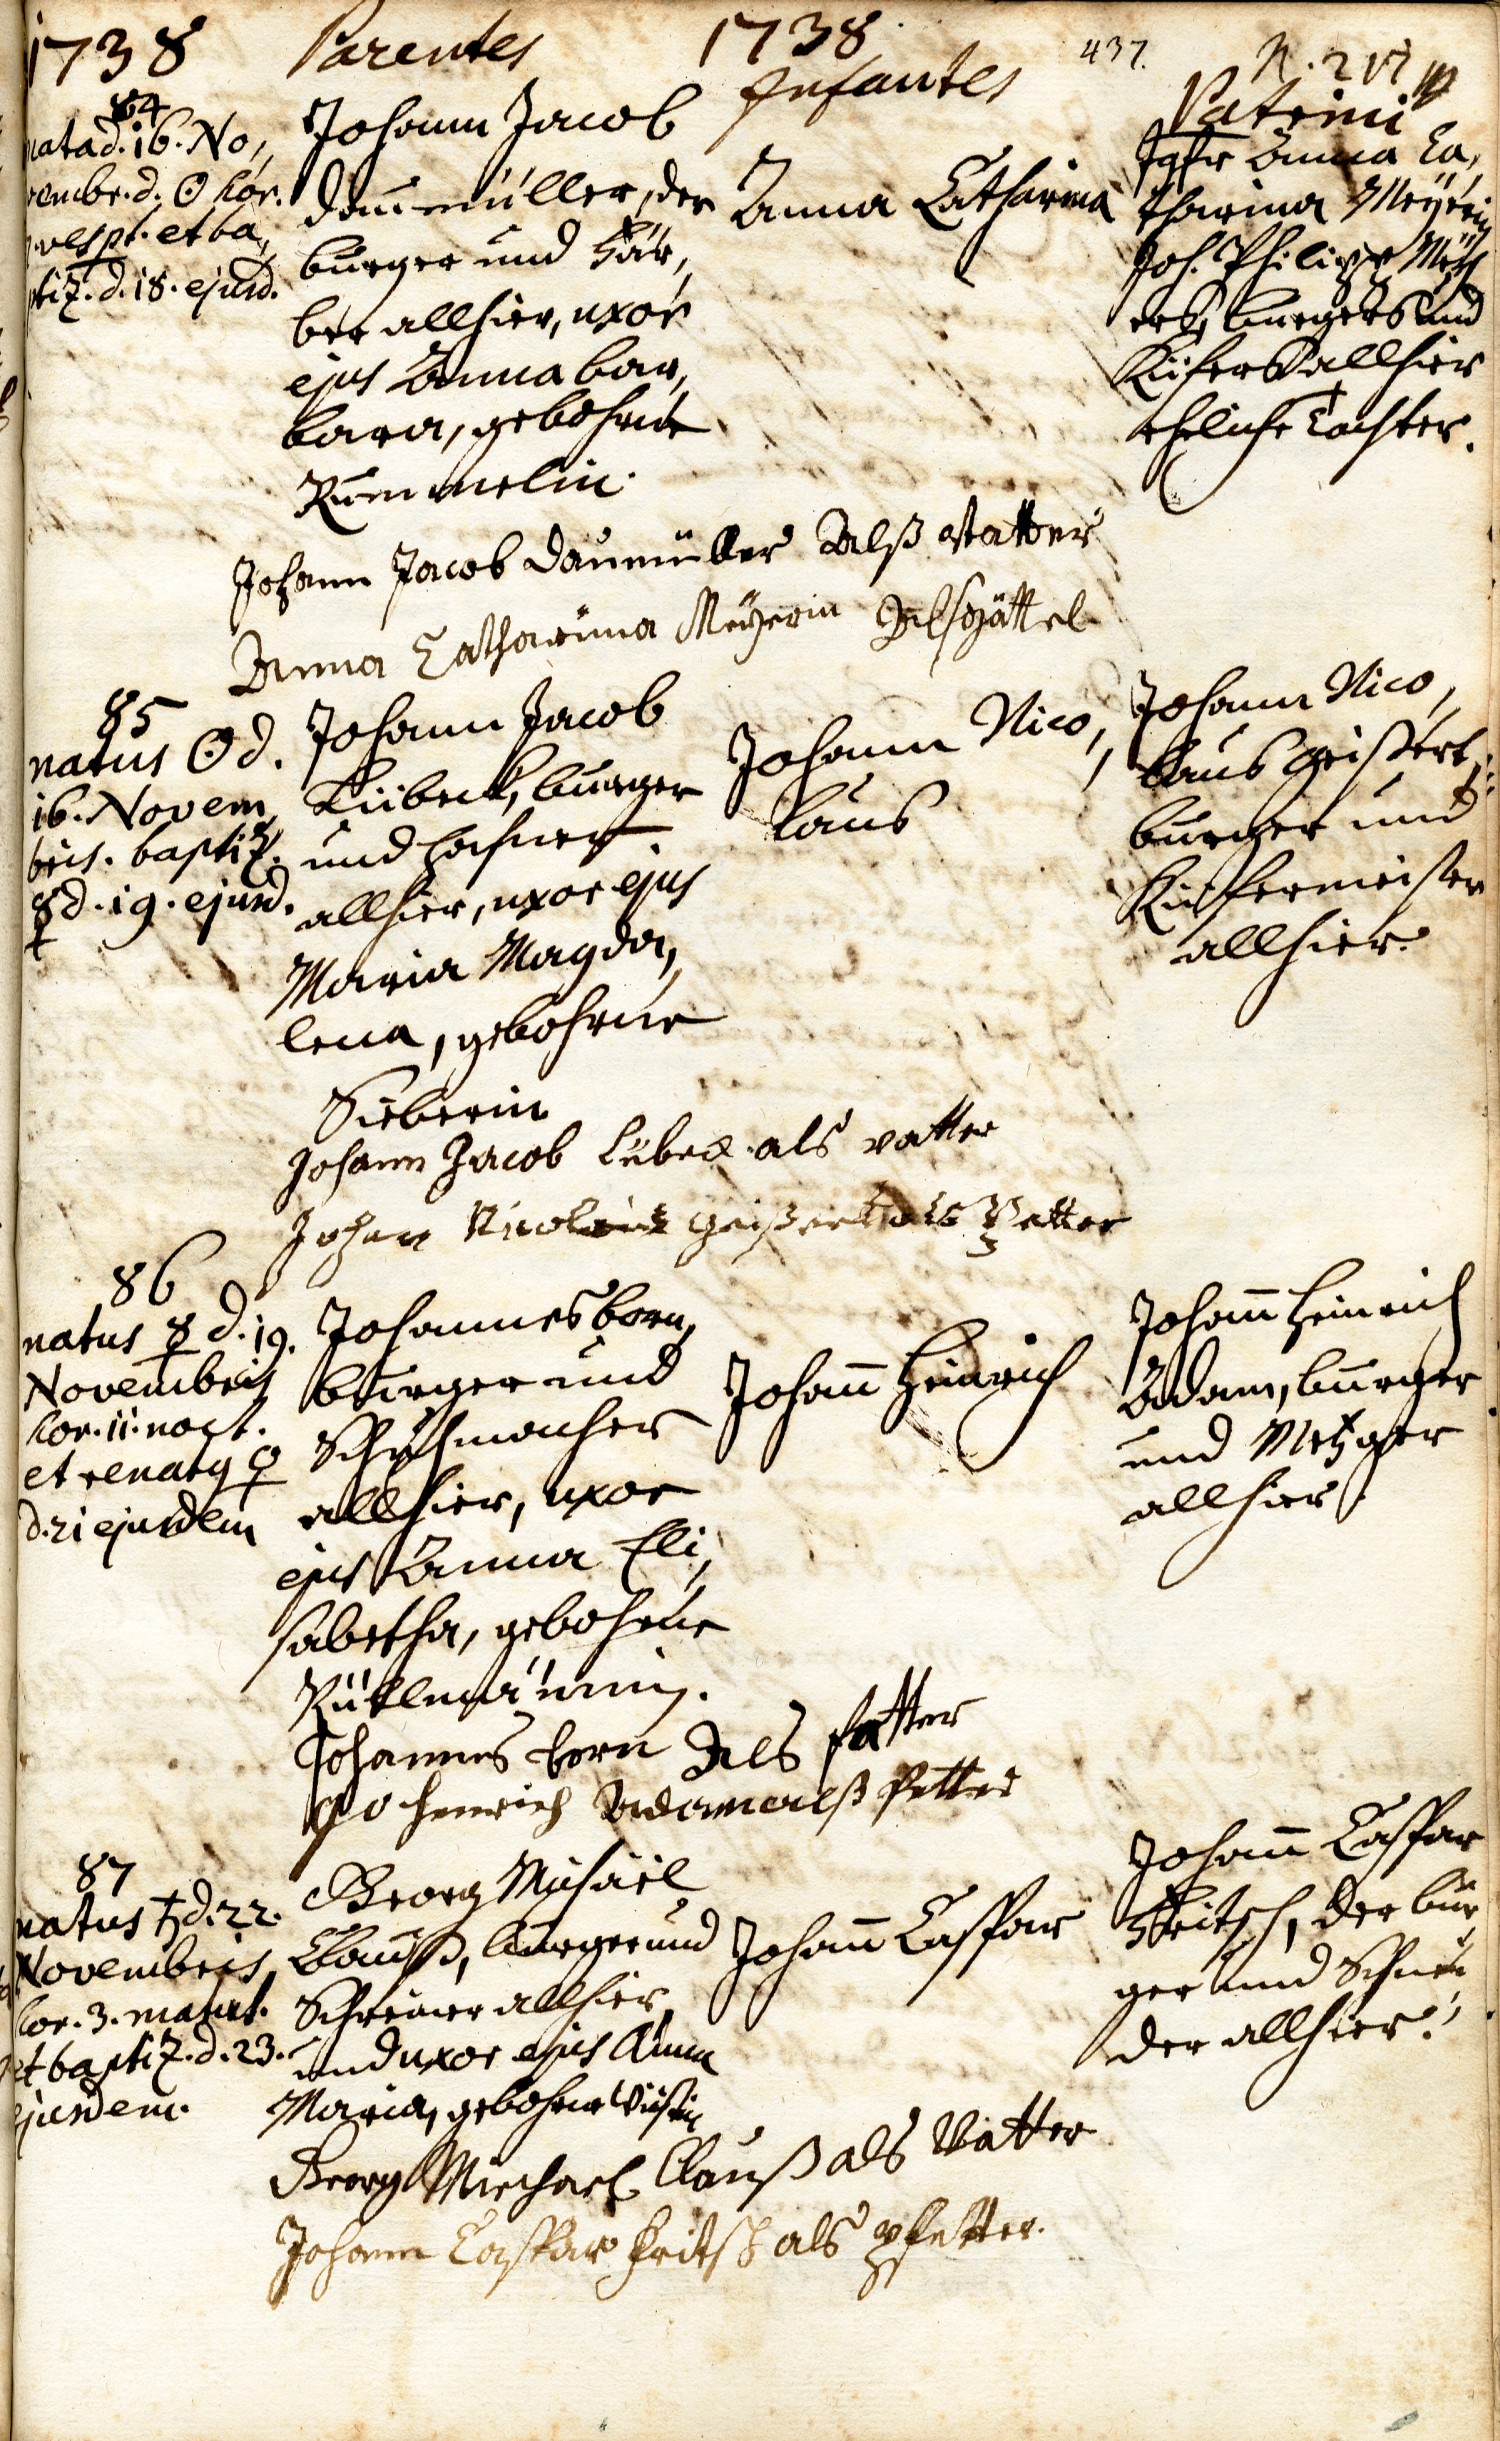 1738 Parentes 1738 437.
Infantes Patrini
84
nata d. 16. No,
vembr. d. ☉ hor.
vesp. et ba,
ptiz. d. 18. ejusd.
Johann Jacob
Daumüller, der
burger und Fär,
ber allhier, uxor
ejus Anna Bar,
bara, gebohrne
Rummelin.
Anna Catharina
Jgfr Anna Ca,
tharina Meÿerin
Joh. Philipp Meÿ
ers, burgers und
Kiefers allhier
eheliche Tochter.
Johann Jacob Daumüller Alß Vatter
Anna Catharina Meÿerin Als
85
natus ☉ d.
16. Novem
bris. baptiz.
☿ d. 19. ejusd.
Johann Jacob
Lübeck, burger
und Hafner
allhier, uxor ejus
Maria Magda,
lena, gebohrne
Sieberin
Johann Nico,
laus
Johann Nico,
laus Geißert,
burger und
Kieffermeister
allhier.
Johann Jacob Lübeck als vatter
Johan Nicolaus Geißert als Petter
86
natus ☿ d. 19.
Novembris
hor. 11. noct.
et renatq ♀
d. 21 ejusdem
Johannes Born,
burger und
Schuhmacher
allhier, uxor
ejus Anna Eli,
sabetha, gebohrne
Johañ Heinrich
Johañ Heinrich
Adam, burger
und Metzger
allhier.
Johannes born Als fatter
Jo Henrich Adam alß Petter
87
natus ♄ d. 22.
Novembris
hor. 3. matut.
et baptiz. d. 23.
ejusdem.
Georg Michael
Clauß, burger und
Schreiner allhier
und uxor ejus Anna
Maria, gebohrne
Johañ Caspar
Johañ Caspar
Fritsch, der bur
ger und Schnei
der allhier.
Georg Miechael Clauß als Vatter
Johann Caspar Fritsch als Pfetter.